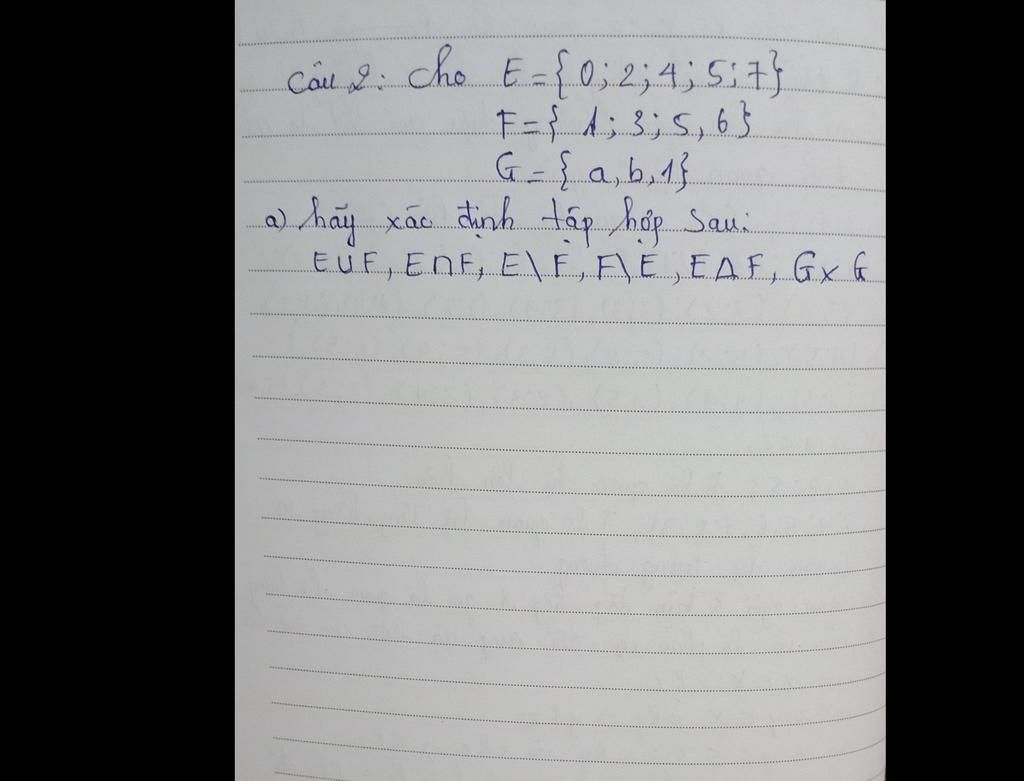 Câu 2: Cho E = { 0; 2; 4; 5; 7}
F = { 1; 3; 5, 6 }
G = { a, b, 1}
a) hãy xác định tập hợp sau:
E ∪ F, E ∩ F, E \ F, F \ E, E Δ F, G x G